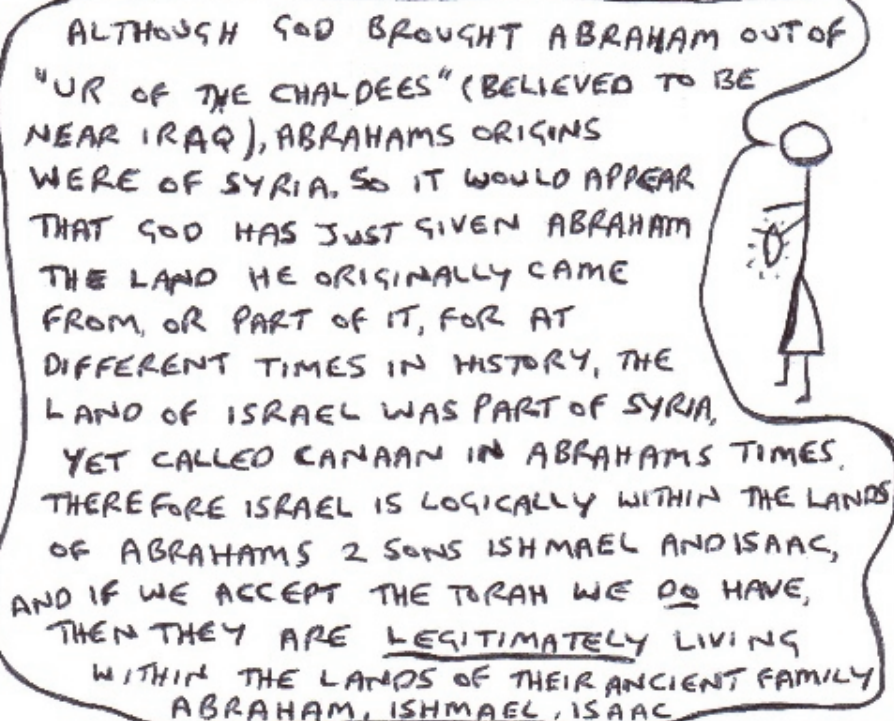 ALTHOUGH GOD BROUGHT ABRAHAM OUT OF
"UR OF THE CHALDEES" (BELIEVED TO BE
NEAR IRAQ), ABRAHAMS ORIGINS
WERE OF SYRIA. SO IT WOULD APPEAR
THAT GOD HAS JUST GIVEN ABRAHAM
THE LAND HE ORIGINALLY CAME
FROM, OR PART OF IT, FOR AT
DIFFERENT TIMES IN HISTORY, THE
LAND OF ISRAEL WAS PART OF SYRIA,
YET CALLED CANAAN IN ABRAHAMS TIMES.
THEREFORE ISRAEL IS LOGICALLY WITHIN THE LANDS
OF ABRAHAMS 2 SONS ISHMAEL AND ISAAC,
AND IF WE ACCEPT THE TORAH WE DO HAVE,
THEN THEY ARE LEGITIMATELY LIVING
WITHIN THE LANDS OF THEIR ANCIENT FAMILY
ABRAHAM, ISHMAEL, ISAAC